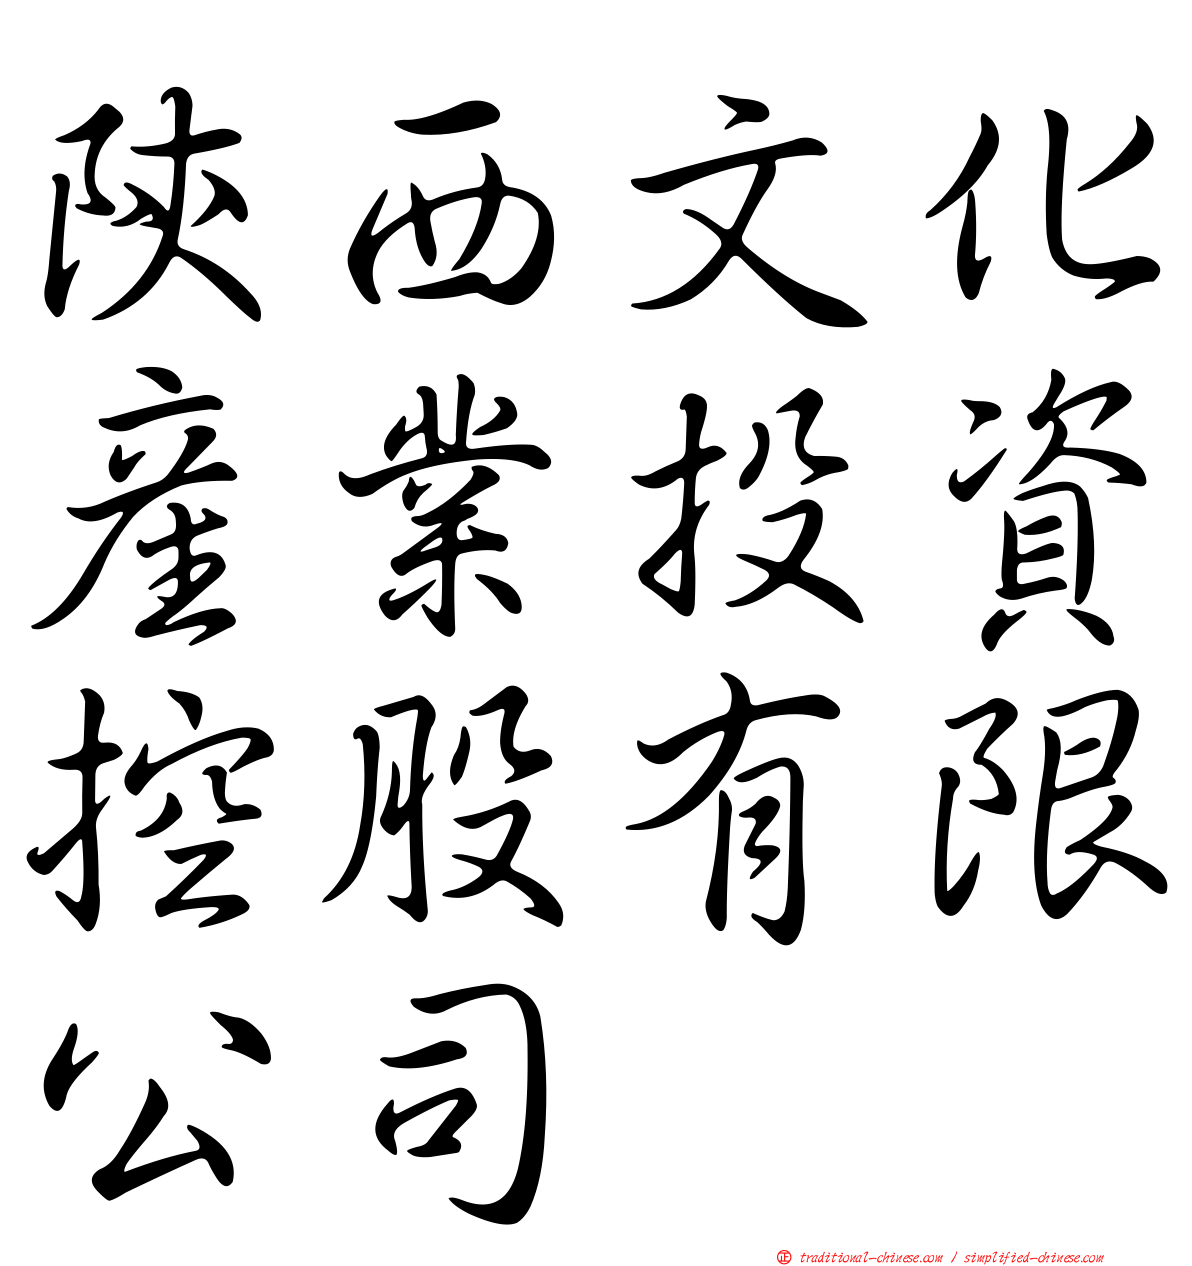 陝西文化
産業投資
控股有限
公司
正 traditional-chinese.com / simplified-chinese.com